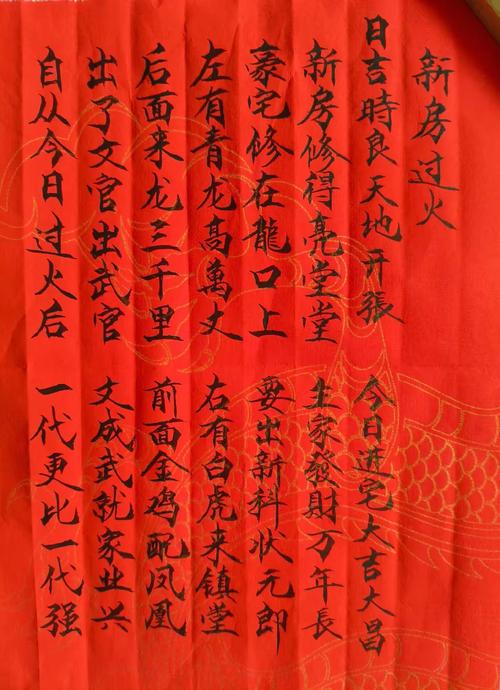 新房过火
日吉時良天地开張 今日进宅大吉大昌
新房修得亮堂堂 主家發財万年長
豪宅修在龍口上 要出新科状元郎
左有青龙高萬丈 右有白虎来镇堂
后面来龙三千里 前面金鸡配凤凰
出了文官出武官 文成武就家业兴
自从今日过火后 一代更比一代强